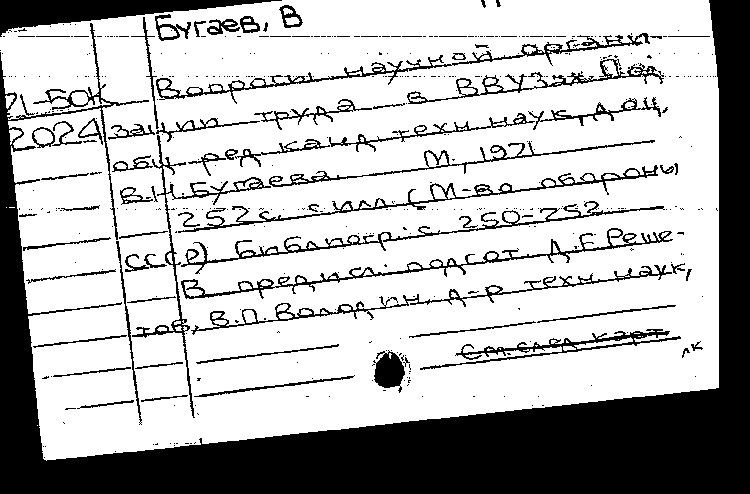 Бугаев, В
71-50К
2024
Вопросы научной органи-
зации труда в ВВУЗах. Под
общ. ред. канд. техн. наук, доц.
В.Н.Бугаева. М., 1971
252 с. с илл. (М-во обороны
СССР) Библиогр.: с. 250-252
В предисл.: подгот. Д.Г.Реше-
тов, В.П.Володин, д-р техн. наук,
См. след. карт.
лк